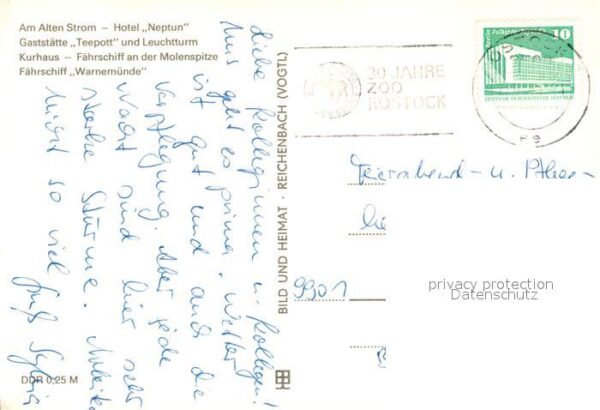 Am Alten Strom – Hotel „Neptun"
Gaststätte „Teepott" und Leuchtturm
Kurhaus – Fährschiff an der Molenspitze
Fährschiff „Warnemünde"
Liebe Kolleginnen u. Kollegen!
Uns geht es prima. Wetter
ist gut und auch die
Verpflegung. Aber jede
Nacht sind hier sehr
starke Stürme.
nicht so viel
Gruß Sylvia
DDR 0,25 M
BILD UND HEIMAT · REICHENBACH (VOGTL)
30 JAHRE
ZOO
ROSTOCK
10
DEUTSCHE DEMOKRATISCHE REPUBLIK
Feierabend- u. Pflege-
9901
privacy protection
Datenschutz